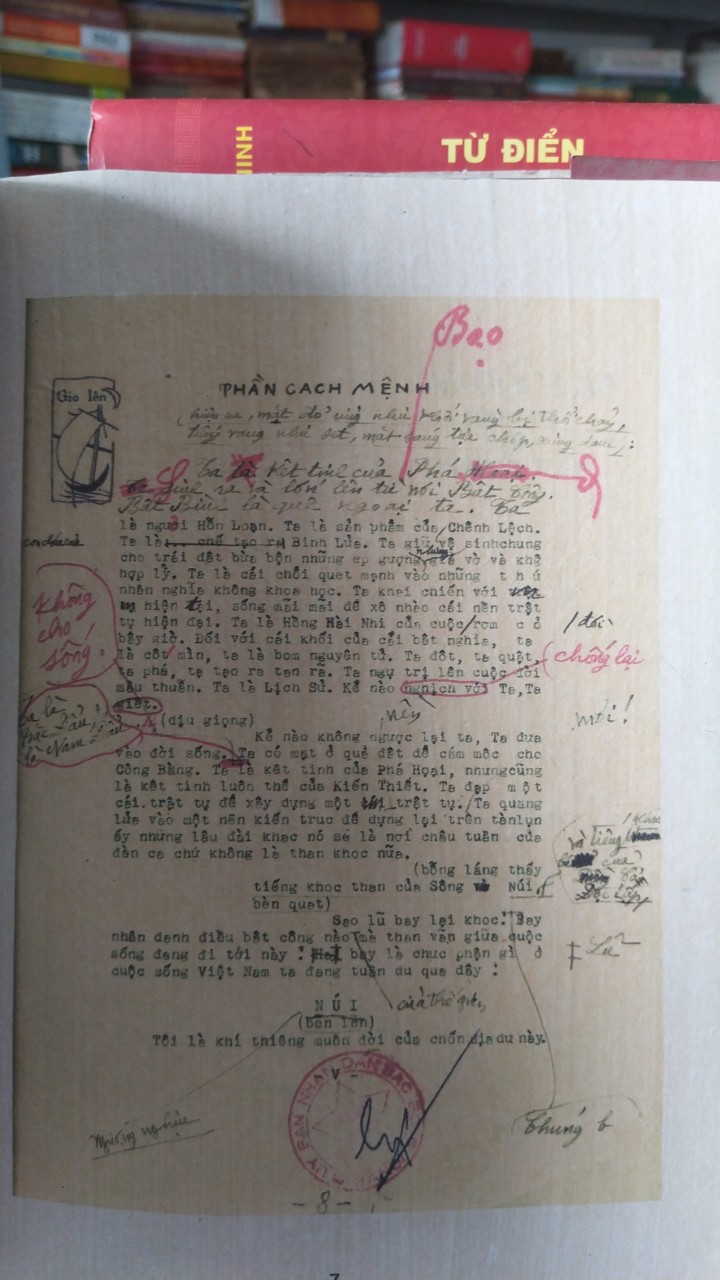 NINH
TỪ ĐIỂN
Bạo
Gio lên
PHẦN CACH MỆNH
tiếng vang như sét, mắt
Ta là kết tinh của Phá Hoại
Ta sinh ra và lớn lên từ nơi Bất Công.
Bất Bình là quê ngoại ta. Ta
là người Hỗn Loạn. Ta là sản phẩm của Chênh Lệch.
Ta là chế tạo ra Binh Lửa. Ta giữ vệ sinhchung
cho trái đất bừa bộn những ép gượng, giả vờ và khô
hợp lý. Ta là cái chổi quet mạnh vào những t h ứ
nhân nghĩa không khoa học. Ta khai chiến với
hiện tại, sống mãi mãi để xô nhào cái nền trật
tự hiện đại. Ta là Hồng Hài Nhi của cuộc rơm c ỏ
bây giờ. Đối với cái khối của cái bất nghĩa, ta
là cốt mìn, ta là bom nguyên tử. Ta đốt, ta quật,
ta phá, ta tạo ra tan rã. Ta ngự trị lên cuộc đời
mâu thuẫn. Ta là Lịch Sử. Kẻ nào nghịch với Ta,Ta
giết.
Không
cho
sống
chống lại
đối
nên
mới!
Ta là
là Nam
(dịu giọng)
Kẻ nào không ngược lại ta, Ta đưa
vào đời sống. Ta có mặt ở quả đất để cắm mốc cho
Công Bằng. Ta là kết tinh của Phá Hoại, nhưngcũng
là kết tinh luôn thể của Kiến Thiết. Ta đạp m ộ t
cái trật tự để xây dựng một trật tự. Ta quăng
lửa vào một nền kiến truc để dựng lại trên tànlụn
ấy những lâu đài khac nó sẽ là nơi chầu tuần của
đàn ca chứ không là than khoc nữa.
(bỗng láng thấy
tiếng khoc than của Sông và Núi,
bèn quat)
và tiếng
của
Độc Lập
Sao lũ bay lại khoc. Bay
nhân danh điều bất công nào mà than vãn giữa cuộc
sống đang đi tới này ! bay là chưc phận gì ở
cuộc sống Việt Nam ta đang tuần du qua đây :
Lũ
N Ú I
của thế giới,
(bên lên)
Tôi là khí thiêng muôn đời của chốn địa dư này.
ỦY BAN NHÂN DÂN BẮC
Chúng
- 8 -
7